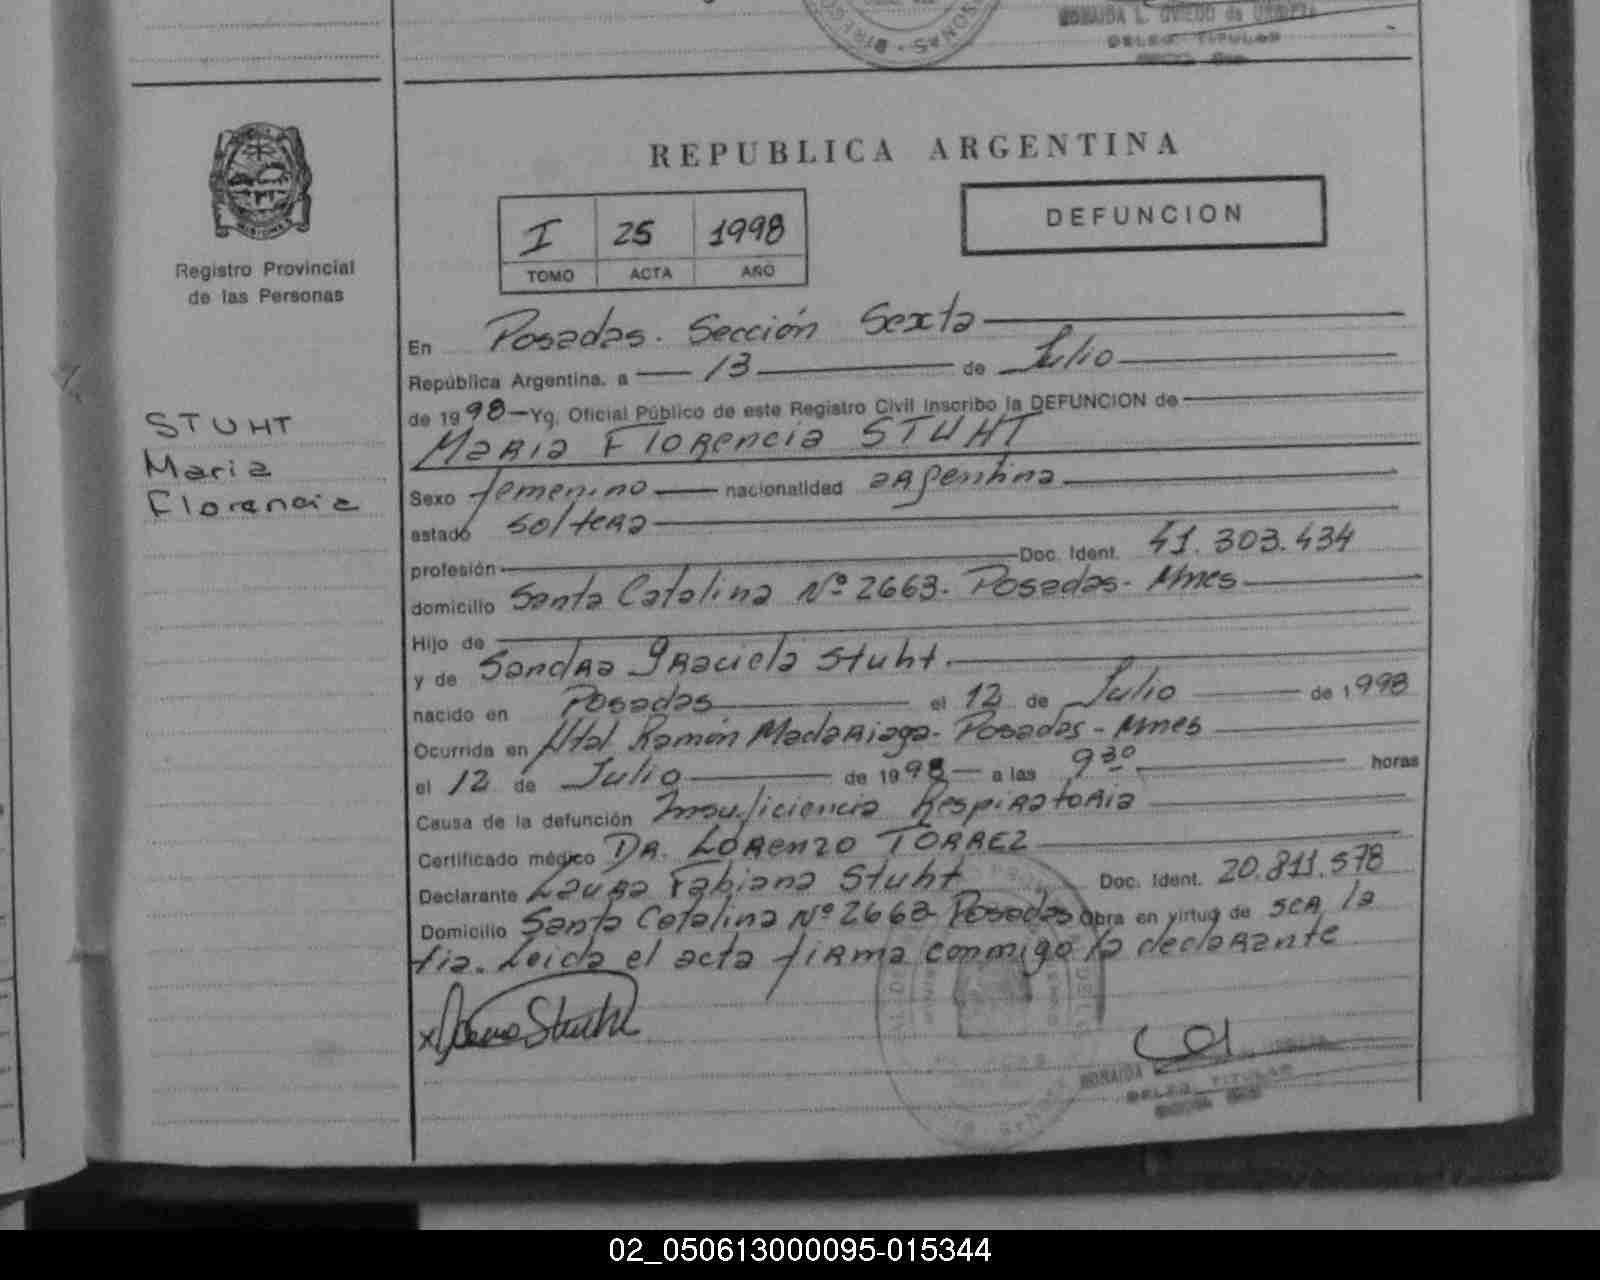 DELEG. TITULAR
REPUBLICA ARGENTINA
I 25 1998
TOMO ACTA AÑO
DEFUNCION
Registro Provincial
de las Personas
STUHT
Maria
Florencia
En Posadas. Sección Sexta
República Argentina, a 13 de Julio
de 1998 - Yo, Oficial Público de este Registro Civil Inscribo la DEFUNCION de
MARIA Florencia STUHT
Sexo femenino nacionalidad argentina
estado soltera
profesión Doc. Ident. 41.303.434
domicilio Santa Catalina Nº 2663. Posadas- Mnes
Hijo de
y de Sandra Graciela Stuht.
nacido en Posadas el 12 de Julio de 1998
Ocurrida en Htal Ramón Madariaga- Posadas - Mnes
el 12 de Julio de 1998 a las 9 30 horas
Causa de la defunción Insuficiencia Respiratoria
Certificado médico DR. LORENZO TORREZ
Declarante Laura Fabiana Stuht Doc. Ident. 20.811.578
Domicilio Santa Catalina Nº 2663- Posadas Obra en virtud de ser la
tia. Leida el acta firma conmigo la declarante
DELEG. TITULAR
02_050613000095-015344